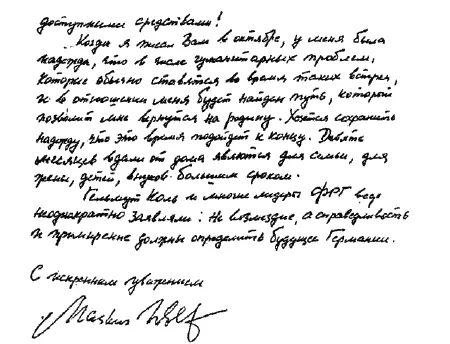 доступными средствами!
Когда я писал Вам в октябре, у меня была
надежда, что в числе гуманитарных проблем,
которые обычно ставятся во время таких встреч,
и в отношении меня будет найден путь, который
позволит мне вернутся на родину. Хочется сохранить
надежду, что это время подойдет к концу. Девять
месяцев вдали от дома являются для семьи, для
жены, детей, внуков большим сроком.
Гельмут Коль и многие лидеры ФРГ ведь
неоднократно заявляли: Не возмездие, а справедливость
и примирение должны определить будущее Германии.
С искренним уважением
Markus Wolf